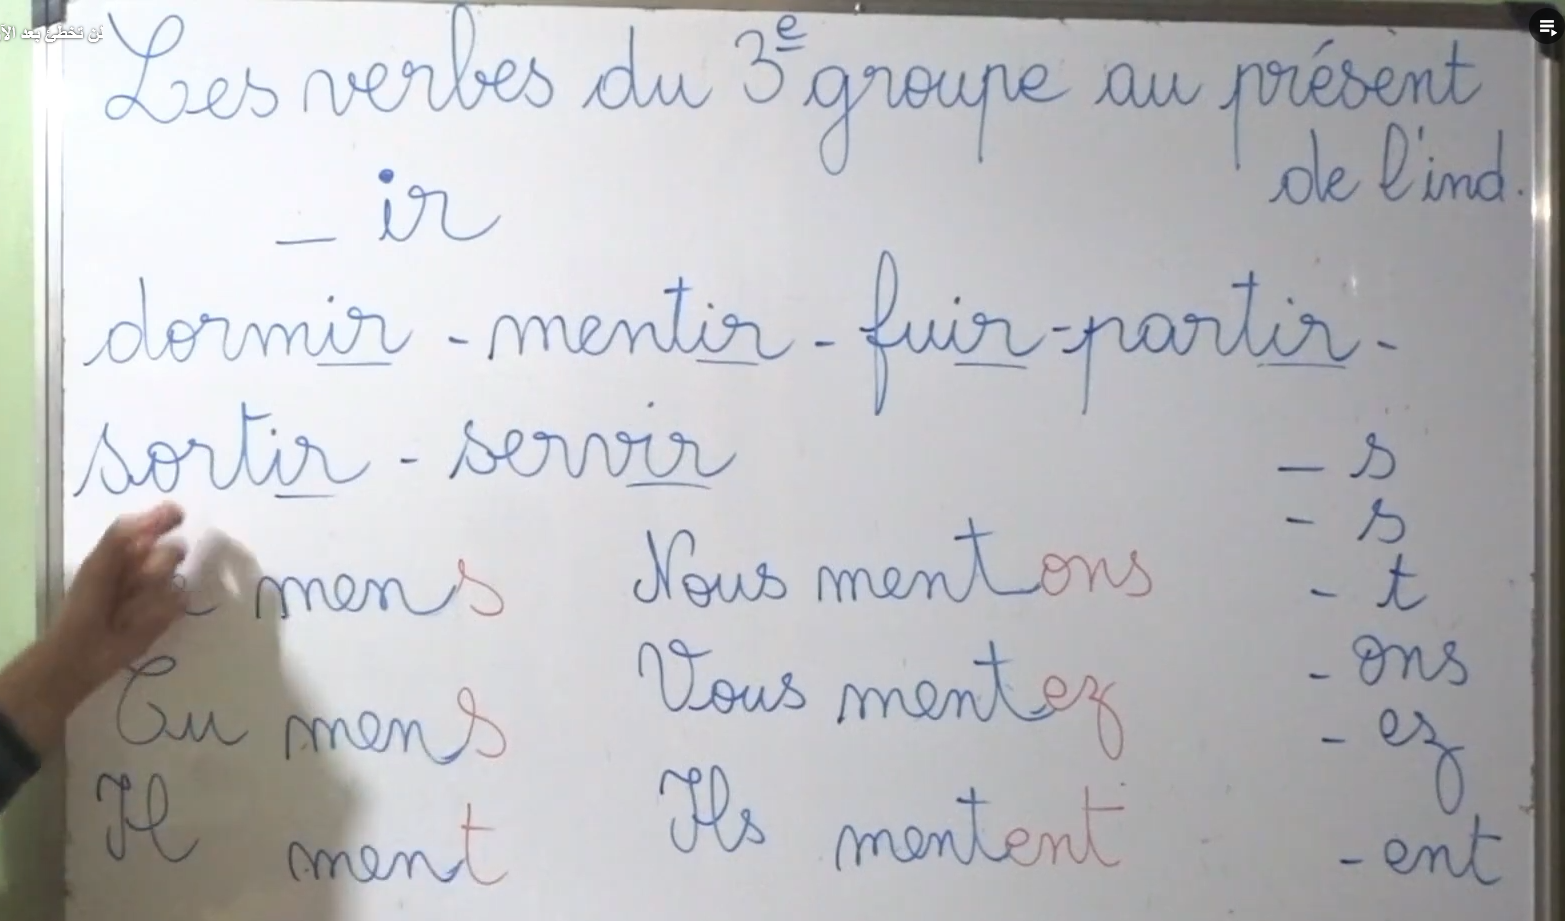 لن تخطئ بعد الآ
Les verbes du 3e groupe au présent
de l'ind.
- ir
dormir - mentir - fuir - partir -
sortir - servir
- s
- s
- t
- ons
- ez
- ent
e mens
Tu mens
Il ment
Nous mentons
Vous mentez
Ils mentent